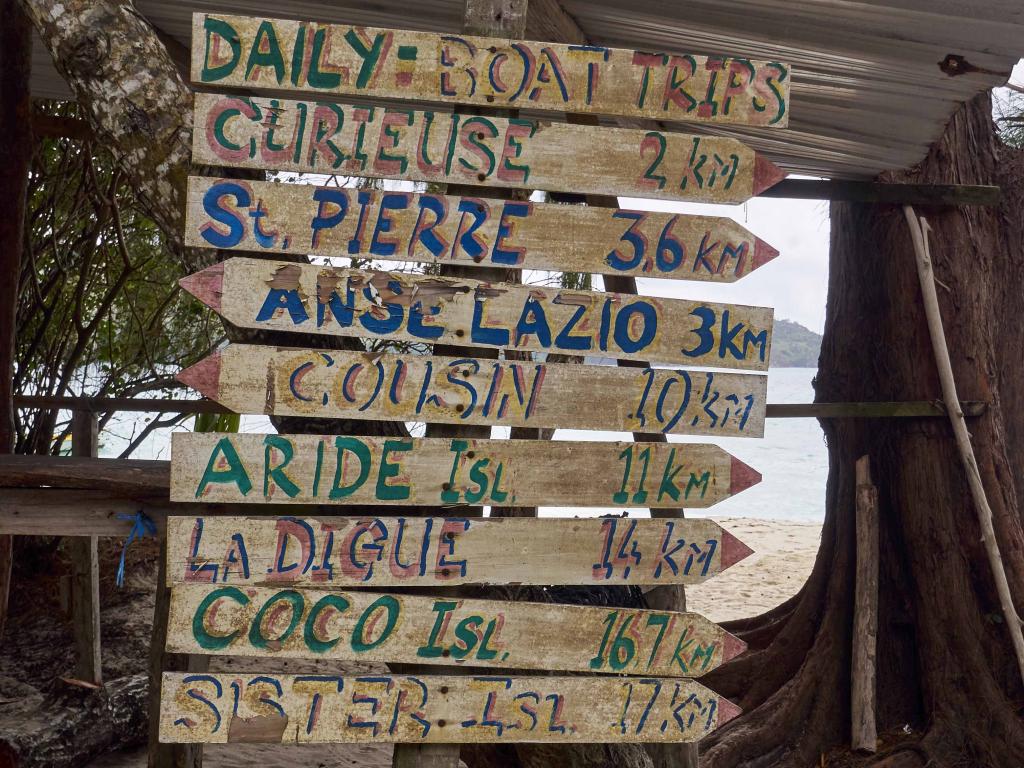 DAILY = BOAT TRIPS
CURIEUSE 2 KM
St. PIERRE 3,6 KM
ANSE LAZIO 3KM
COUSIN 10KM
ARIDE ISL. 11 KM
LA DIGUE 14 KM
COCO ISL. 16,7 KM
SISTER ISL. 17KM